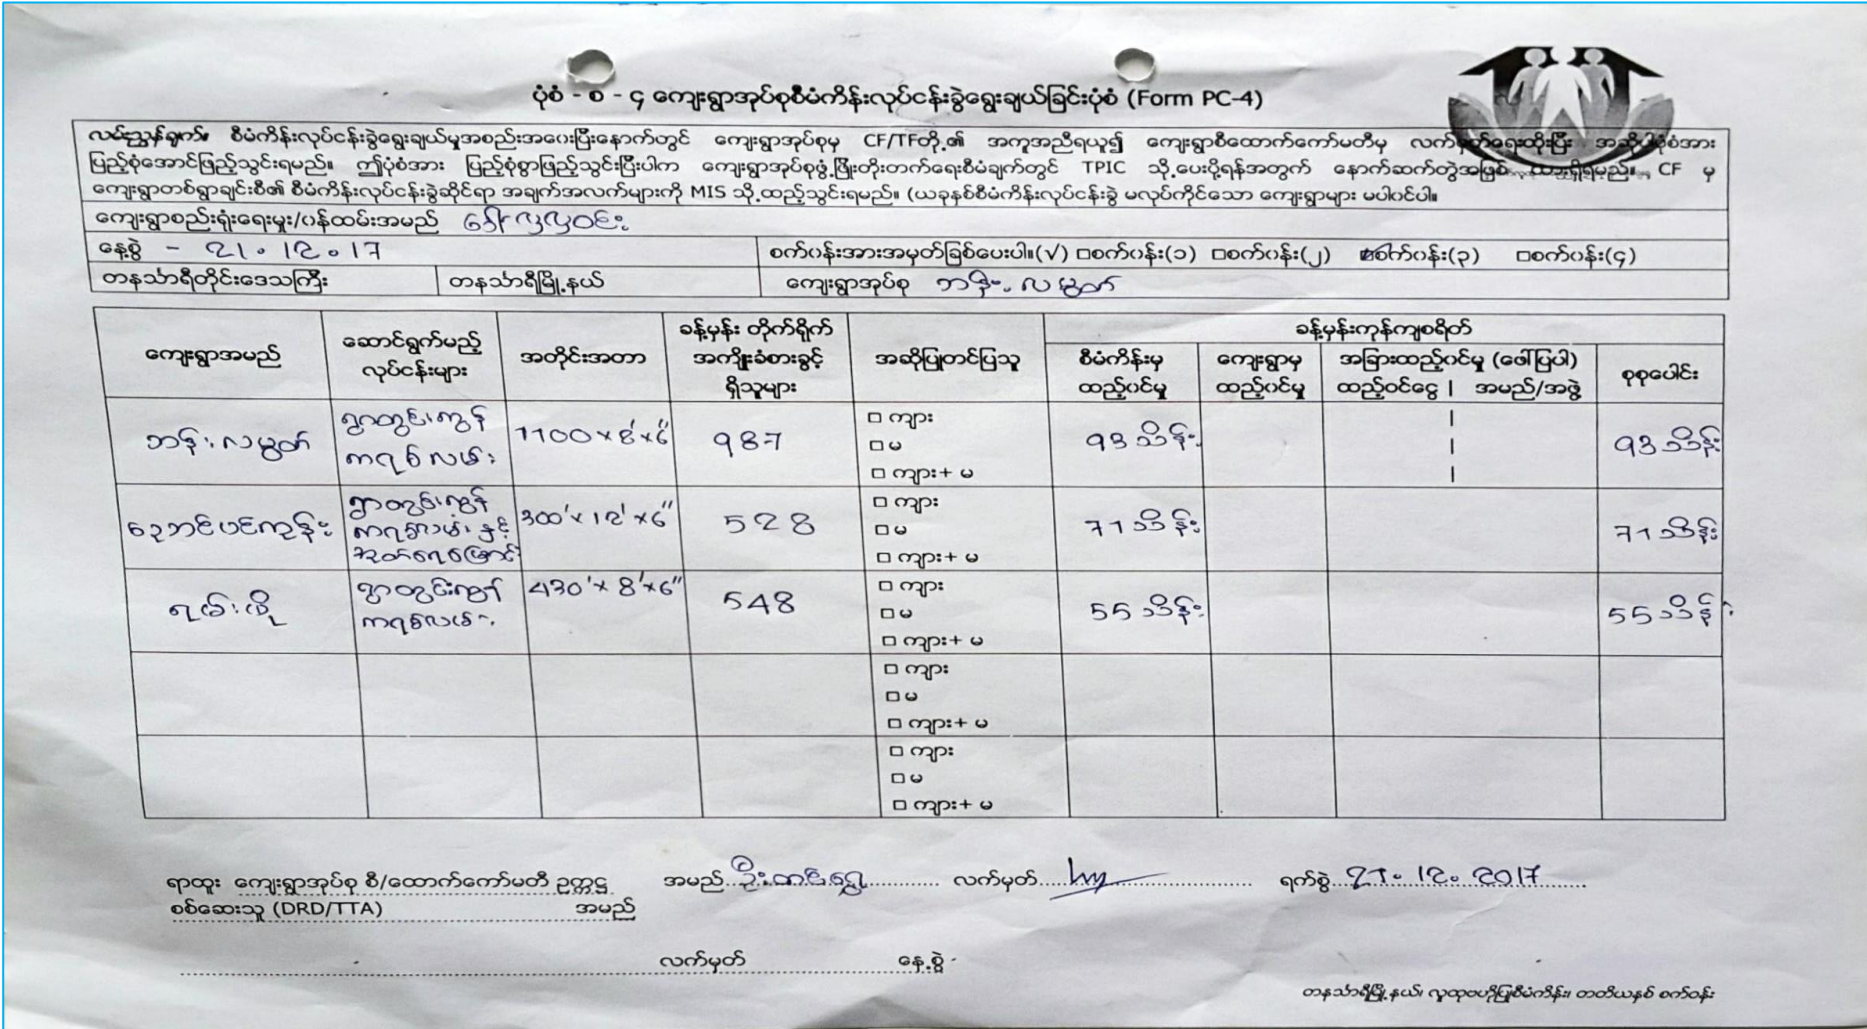 ပုံစံ - စ - ၄ ကျေးရွာအုပ်စုစီမံကိန်းလုပ်ငန်းခွဲရွေးချယ်ခြင်းပုံစံ (Form PC-4)
လမ်းညွှန်ချက်။ စီမံကိန်းလုပ်ငန်းခွဲရွေးချယ်မှုအစည်းအဝေးပြီးနောက်တွင် ကျေးရွာအုပ်စုမှ CF/TFတို့၏ အကူအညီရယူ၍ ကျေးရွာစီထောက်ကော်မတီမှ လက်မှတ်ရေးထိုးပြီး အဆိုပါပုံစံအား
ပြည့်စုံအောင်ဖြည့်သွင်းရမည်။ ဤပုံစံအား ပြည့်စုံစွာဖြည့်သွင်းပြီးပါက ကျေးရွာအုပ်စုဖွံ့ဖြိုးတိုးတက်ရေးစီမံချက်တွင် TPIC သို့ပေးပို့ရန်အတွက် နောက်ဆက်တွဲအဖြစ် ထားရှိရမည်။ CF မှ
ကျေးရွာတစ်ရွာချင်းစီ၏ စီမံကိန်းလုပ်ငန်းခွဲဆိုင်ရာ အချက်အလက်များကို MIS သို့ထည့်သွင်းရမည်။ (ယခုနှစ်စီမံကိန်းလုပ်ငန်းခွဲ မလုပ်ကိုင်သော ကျေးရွာများ မပါဝင်ပါ။
ကျေးရွာစည်းရုံးရေးမှူး/ဝန်ထမ်းအမည် ဒေါ်လှလှဝင်း
နေ့စွဲ - ၂၁.၁၂.၁၇ စက်ဝန်းအားအမှတ်ခြစ်ပေးပါ။(√) □စက်ဝန်း(၁) □စက်ဝန်း(၂) ☑စက်ဝန်း(၃) □စက်ဝန်း(၄)
တနင်္သာရီတိုင်းဒေသကြီး တနင်္သာရီမြို့နယ် ကျေးရွာအုပ်စု ဘန်းလမွတ်
ကျေးရွာအမည် ဆောင်ရွက်မည့် လုပ်ငန်းများ အတိုင်းအတာ ခန့်မှန်း တိုက်ရိုက် အကျိုးခံစားခွင့် ရှိသူများ အဆိုပြုတင်ပြသူ ခန့်မှန်းကုန်ကျစရိတ်
စီမံကိန်းမှ ထည့်ဝင်မှု ကျေးရွာမှ ထည့်ဝင်မှု အခြားထည့်ဝင်မှု (ဖော်ပြပါ) ထည့်ဝင်ငွေ | အမည်/အဖွဲ့ စုစုပေါင်း
ဘန်းလမွတ် ရွာတွင်းကွန် ကရစ်လမ်း 1100 x 8' x 6" 987 □ ကျား □ မ □ ကျား+ မ 93 သိန်း 93 သိန်း
ရွာတွင်းကွန် ကရစ်လမ်း နှင့် 300' x 12' x 6" 528 □ ကျား □ မ □ ကျား+ မ 71 သိန်း 71 သိန်း
ရွာတွင်းကွန် ကရစ်လမ်း 430' x 8' x 6" 548 □ ကျား □ မ □ ကျား+ မ 55 သိန်း 55 သိန်း
□ ကျား
□ မ
□ ကျား+ မ
□ ကျား
□ မ
□ ကျား+ မ
ရာထူး ကျေးရွာအုပ်စု စီ/ထောက်ကော်မတီ ဥက္ကဋ္ဌ အမည် ဦးတင်ရွှေ လက်မှတ် ရက်စွဲ 21. 12. 2017
စစ်ဆေးသူ (DRD/TTA) အမည်
လက်မှတ် နေ့စွဲ
တနင်္သာရီမြို့နယ်၊ လူထုဗဟိုပြုစီမံကိန်း၊ တတိယနှစ် စက်ဝန်း